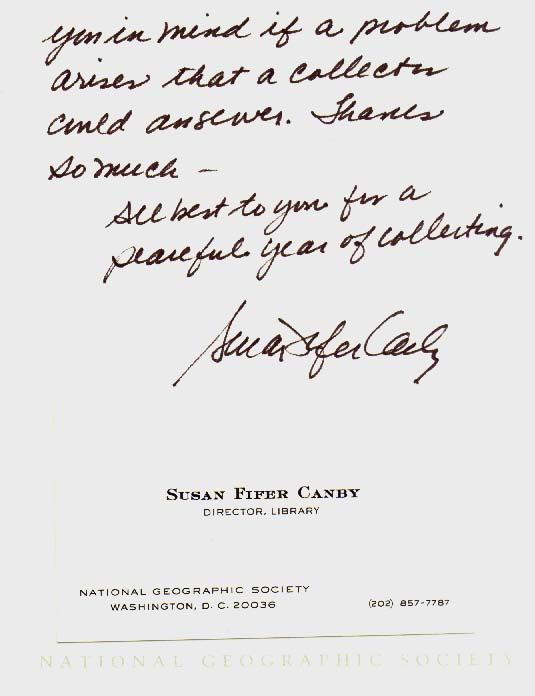 you in mind if a problem
arises that a collector
could answer. Thanks
so much –
All best to you for a
peaceful year of collecting.
Susan Fifer Canby
SUSAN FIFER CANBY
DIRECTOR, LIBRARY
NATIONAL GEOGRAPHIC SOCIETY
WASHINGTON, D. C. 20036
(202) 857-7787
NATIONAL GEOGRAPHIC SOCIETY